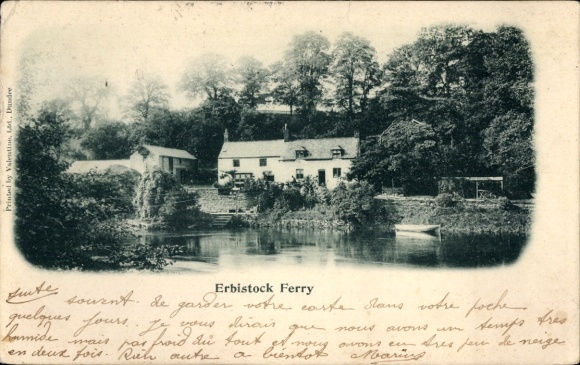 Printed by Valentine, Ltd., Dundee
Erbistock Ferry
suite souvent. de garder votre carte dans votre poche
quelques jours. Je vous dirais que nous avons un temps très
humide mais pas froid du tout et nous avons eu très peu de neige
en deux fois. Rien autre a bientôt Marius